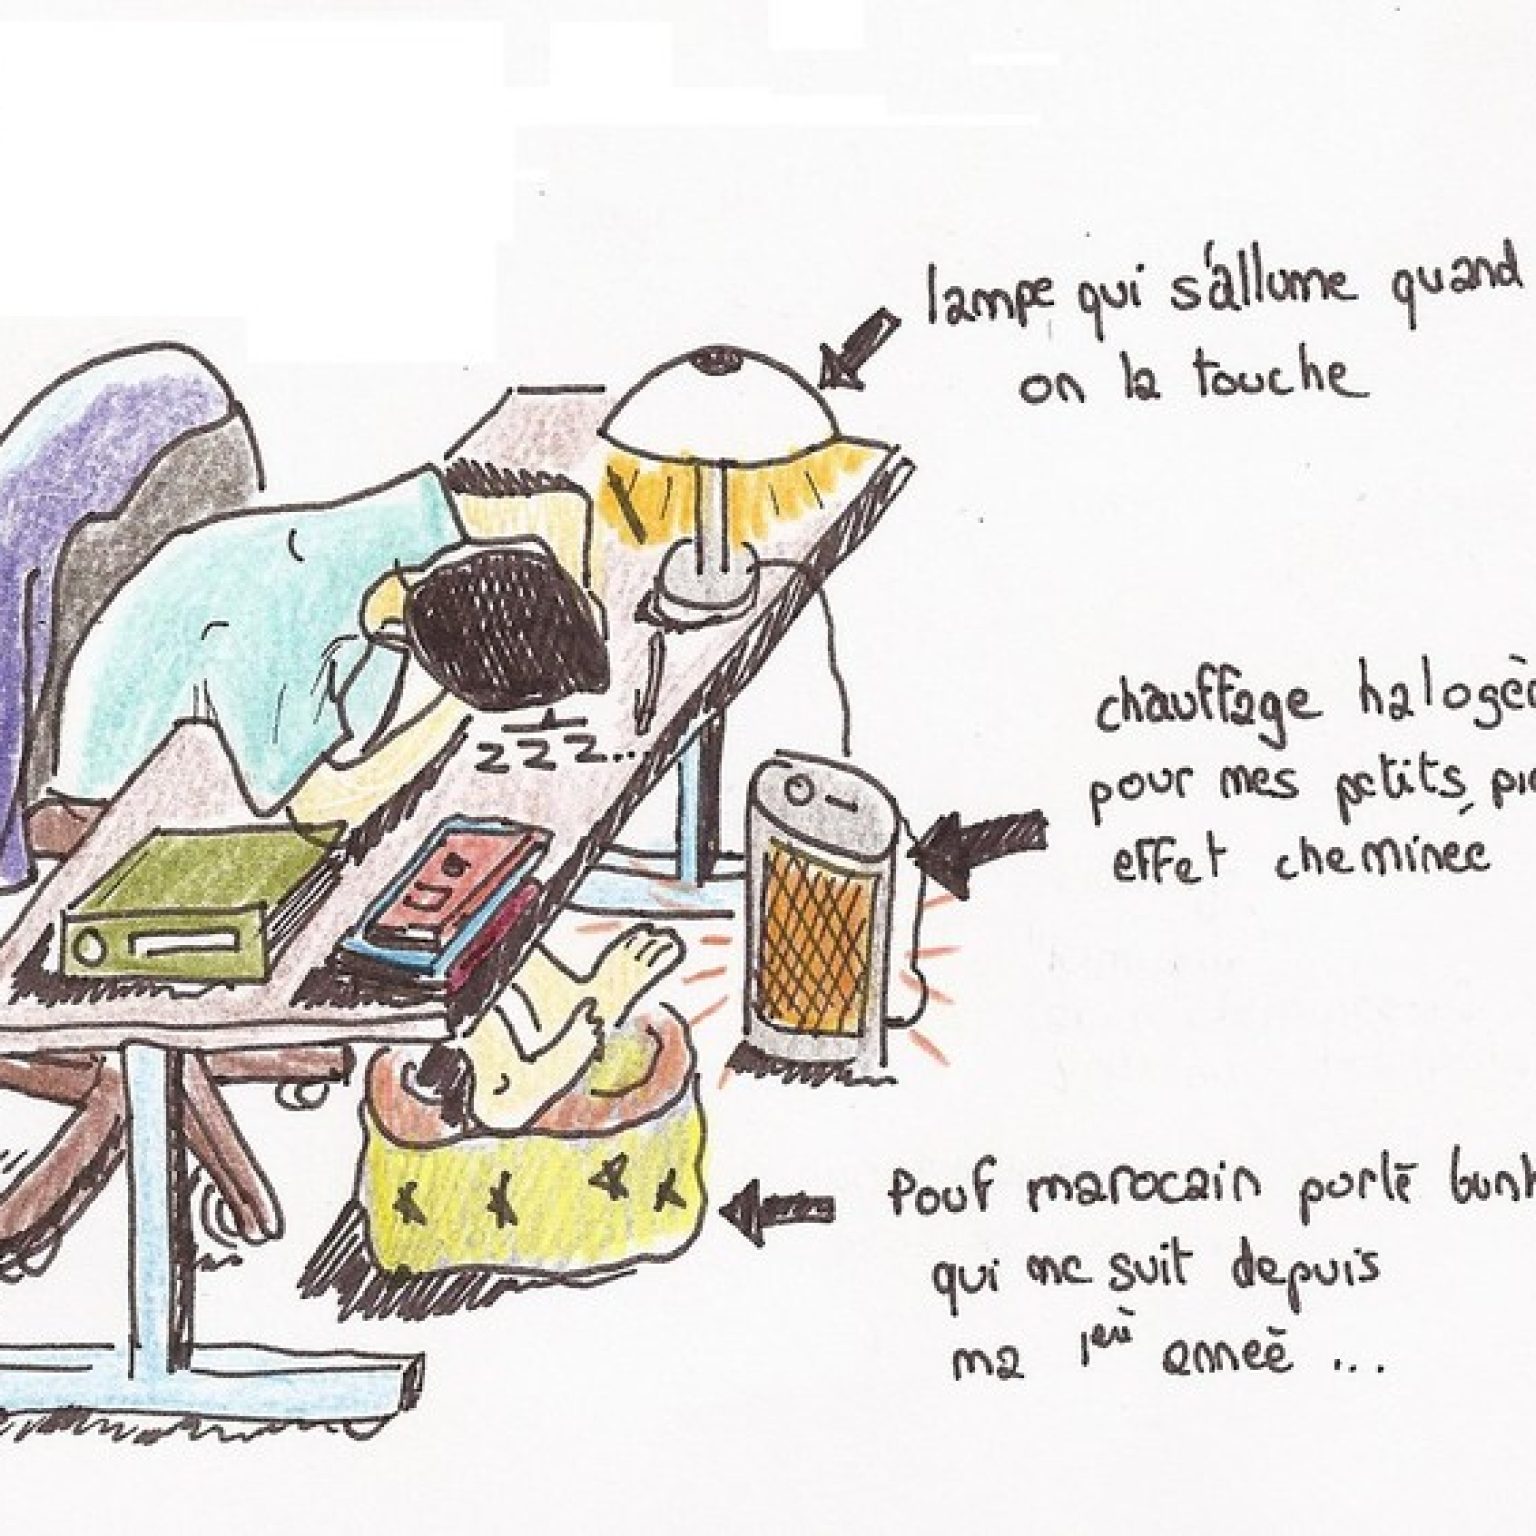 lampe qui s'allume quand
on la touche
zzz...
chauffage halogè
pour mes petits
effet cheminée
Pouf marocain porté
qui me suit depuis
ma 1erè anneè ...